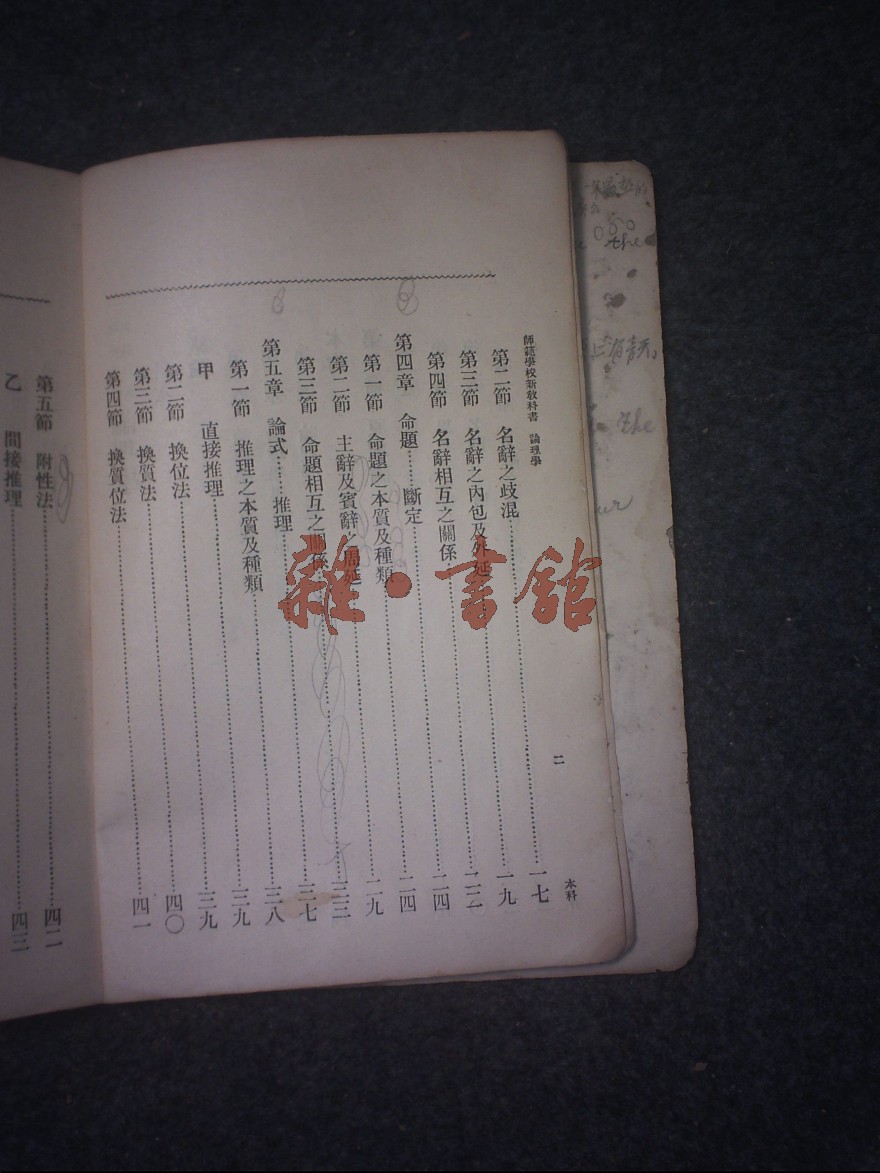 師範學校新敎科書 論理學 二 本科
第二節 名辭之歧混……一七
第三節 名辭之內包及外延……一九
第四節 名辭相互之關係……二二
第四章 命題……斷定……二四
第一節 命題之本質及種類……二四
第二節 主辭及賓辭之周延……二九
第三節 命題相互之關係……三三
第五章 論式……推理……三七
第一節 推理之本質及種類……三八
甲 直接推理……三九
第二節 換位法……三九
第三節 換質法……四〇
第四節 換質位法……四一
第五節 附性法……四二
乙 間接推理……四三
雜·書館
the
the